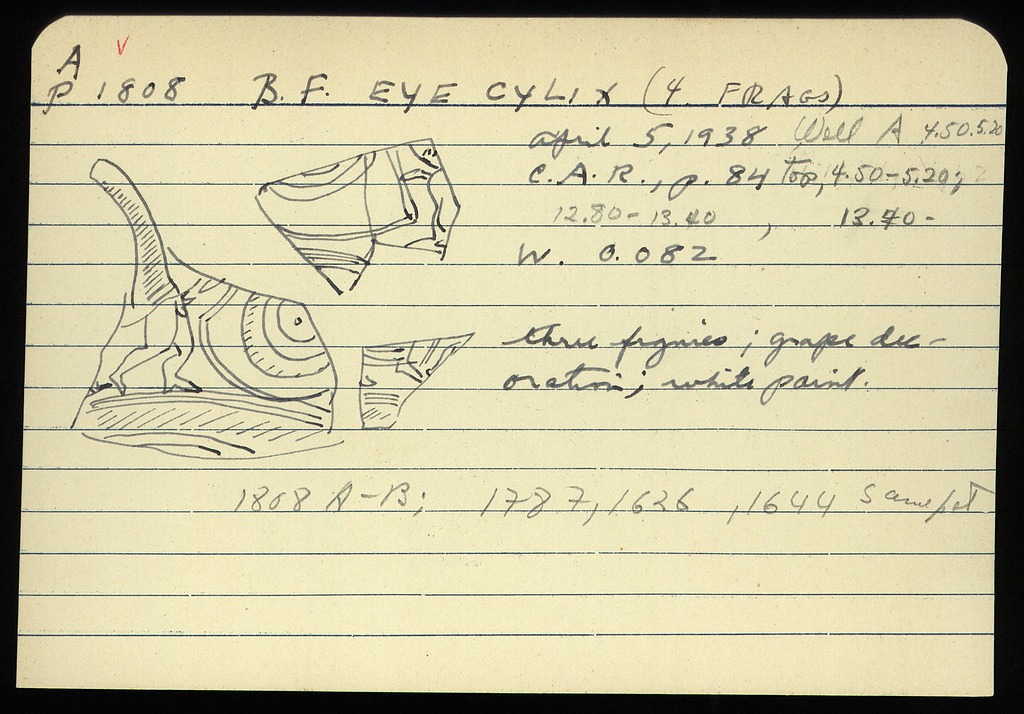 A v
P 1808 B.F. EYE CYLIX (4 FRAGS)
April 5, 1938 Well A 4.50-5.20
C.A.R., p. 84 Top, 4.50-5.20;
12.80-13.40, 13.40-
W. 0.082
three figures; grape dec-
oration; white paint.
1808 A-B; 1787, 1626, 1644 same pot